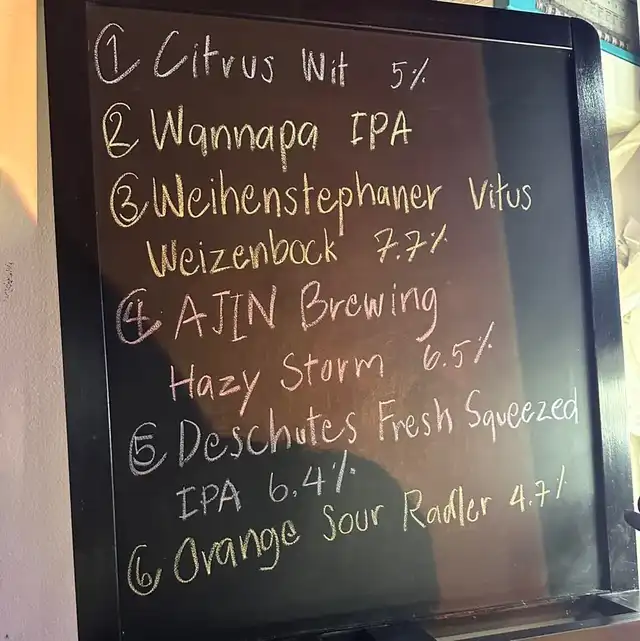 ① Citrus Wit 5%
② Wannapa IPA
③ Weihenstephaner Vitus
Weizenbock 7.7%
④ AJIN Brewing
Hazy Storm 6.5%
⑤ Deschutes Fresh Squeezed
IPA 6.4%
⑥ Orange Sour Radler 4.7%